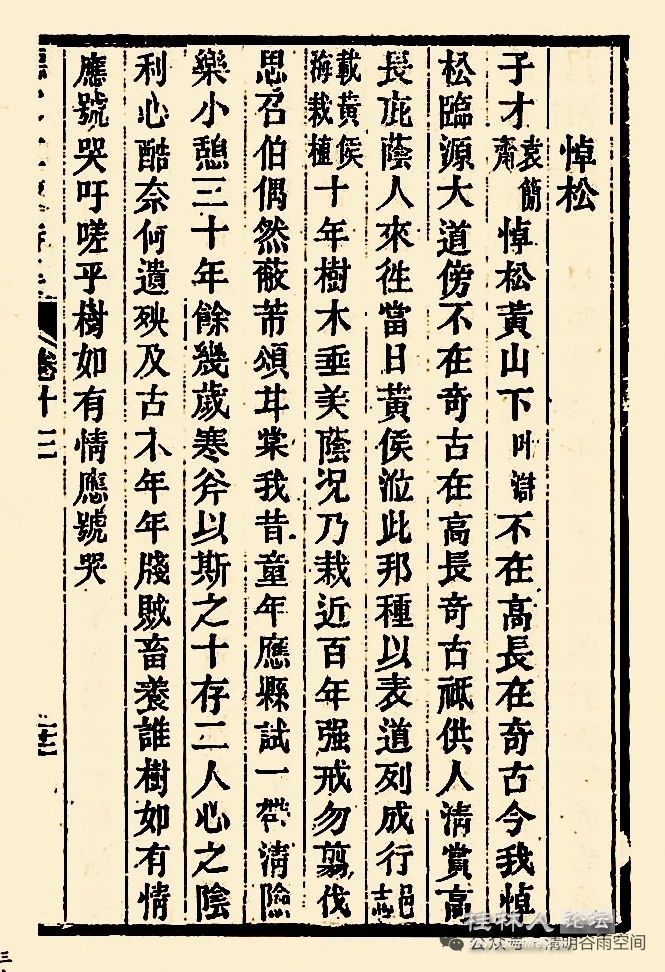 悼松
子才袁簡齋悼松黃山下叫不在高長在奇古今我悼
松臨源大道傍不在奇古在高長奇古祗供人清賞高
長庇蔭人來徃當日黃侯涖此邦種以表道列成行邑志
載黃侯海栽植十年樹木垂美蔭况乃栽近百年强戒勿翦伐
思召伯偶然蔽芾頌甘棠我昔童年應縣試一帶清陰
樂小憩三十年餘幾歲寒斧以斯之十存二人心之陰
利心酷奈何遺殃及古木年年牋賊畜養誰樹如有情
應號哭吁嗟乎樹如有情應號哭
卷十三
桂林人论坛
公众号·清明谷雨空间